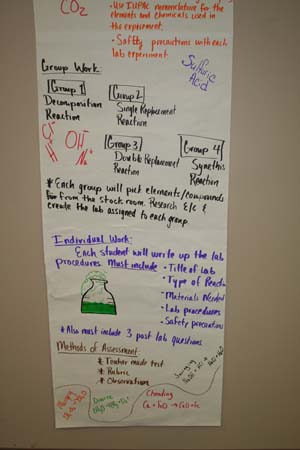 CO2
• Use IUPAC nomenclature for the
elements and chemicals used in
the experiment.
• Safety precautions with each
lab experiment
Sulfuric
Acid
Group Work:
Group 1
Decomposition
Reaction
Group 2
Single Replacement
Reaction
OH-
Na+
Group 3
Double Replacement
Reaction
Group 4
Synethis
Reaction
* Each group will pick elements/compounds
from the stock room. Research &
create the lab assigned to each group.
Individual Work:
Each student will write up the lab
procedures Must include
• Title of Lab
• Type of React
• Materials Needed
• Lab procedures
• Safety precautions
* Also must include 3 post lab questions
Methods of Assessment
* Teacher made test
* Rubric
* Observations
Cheating